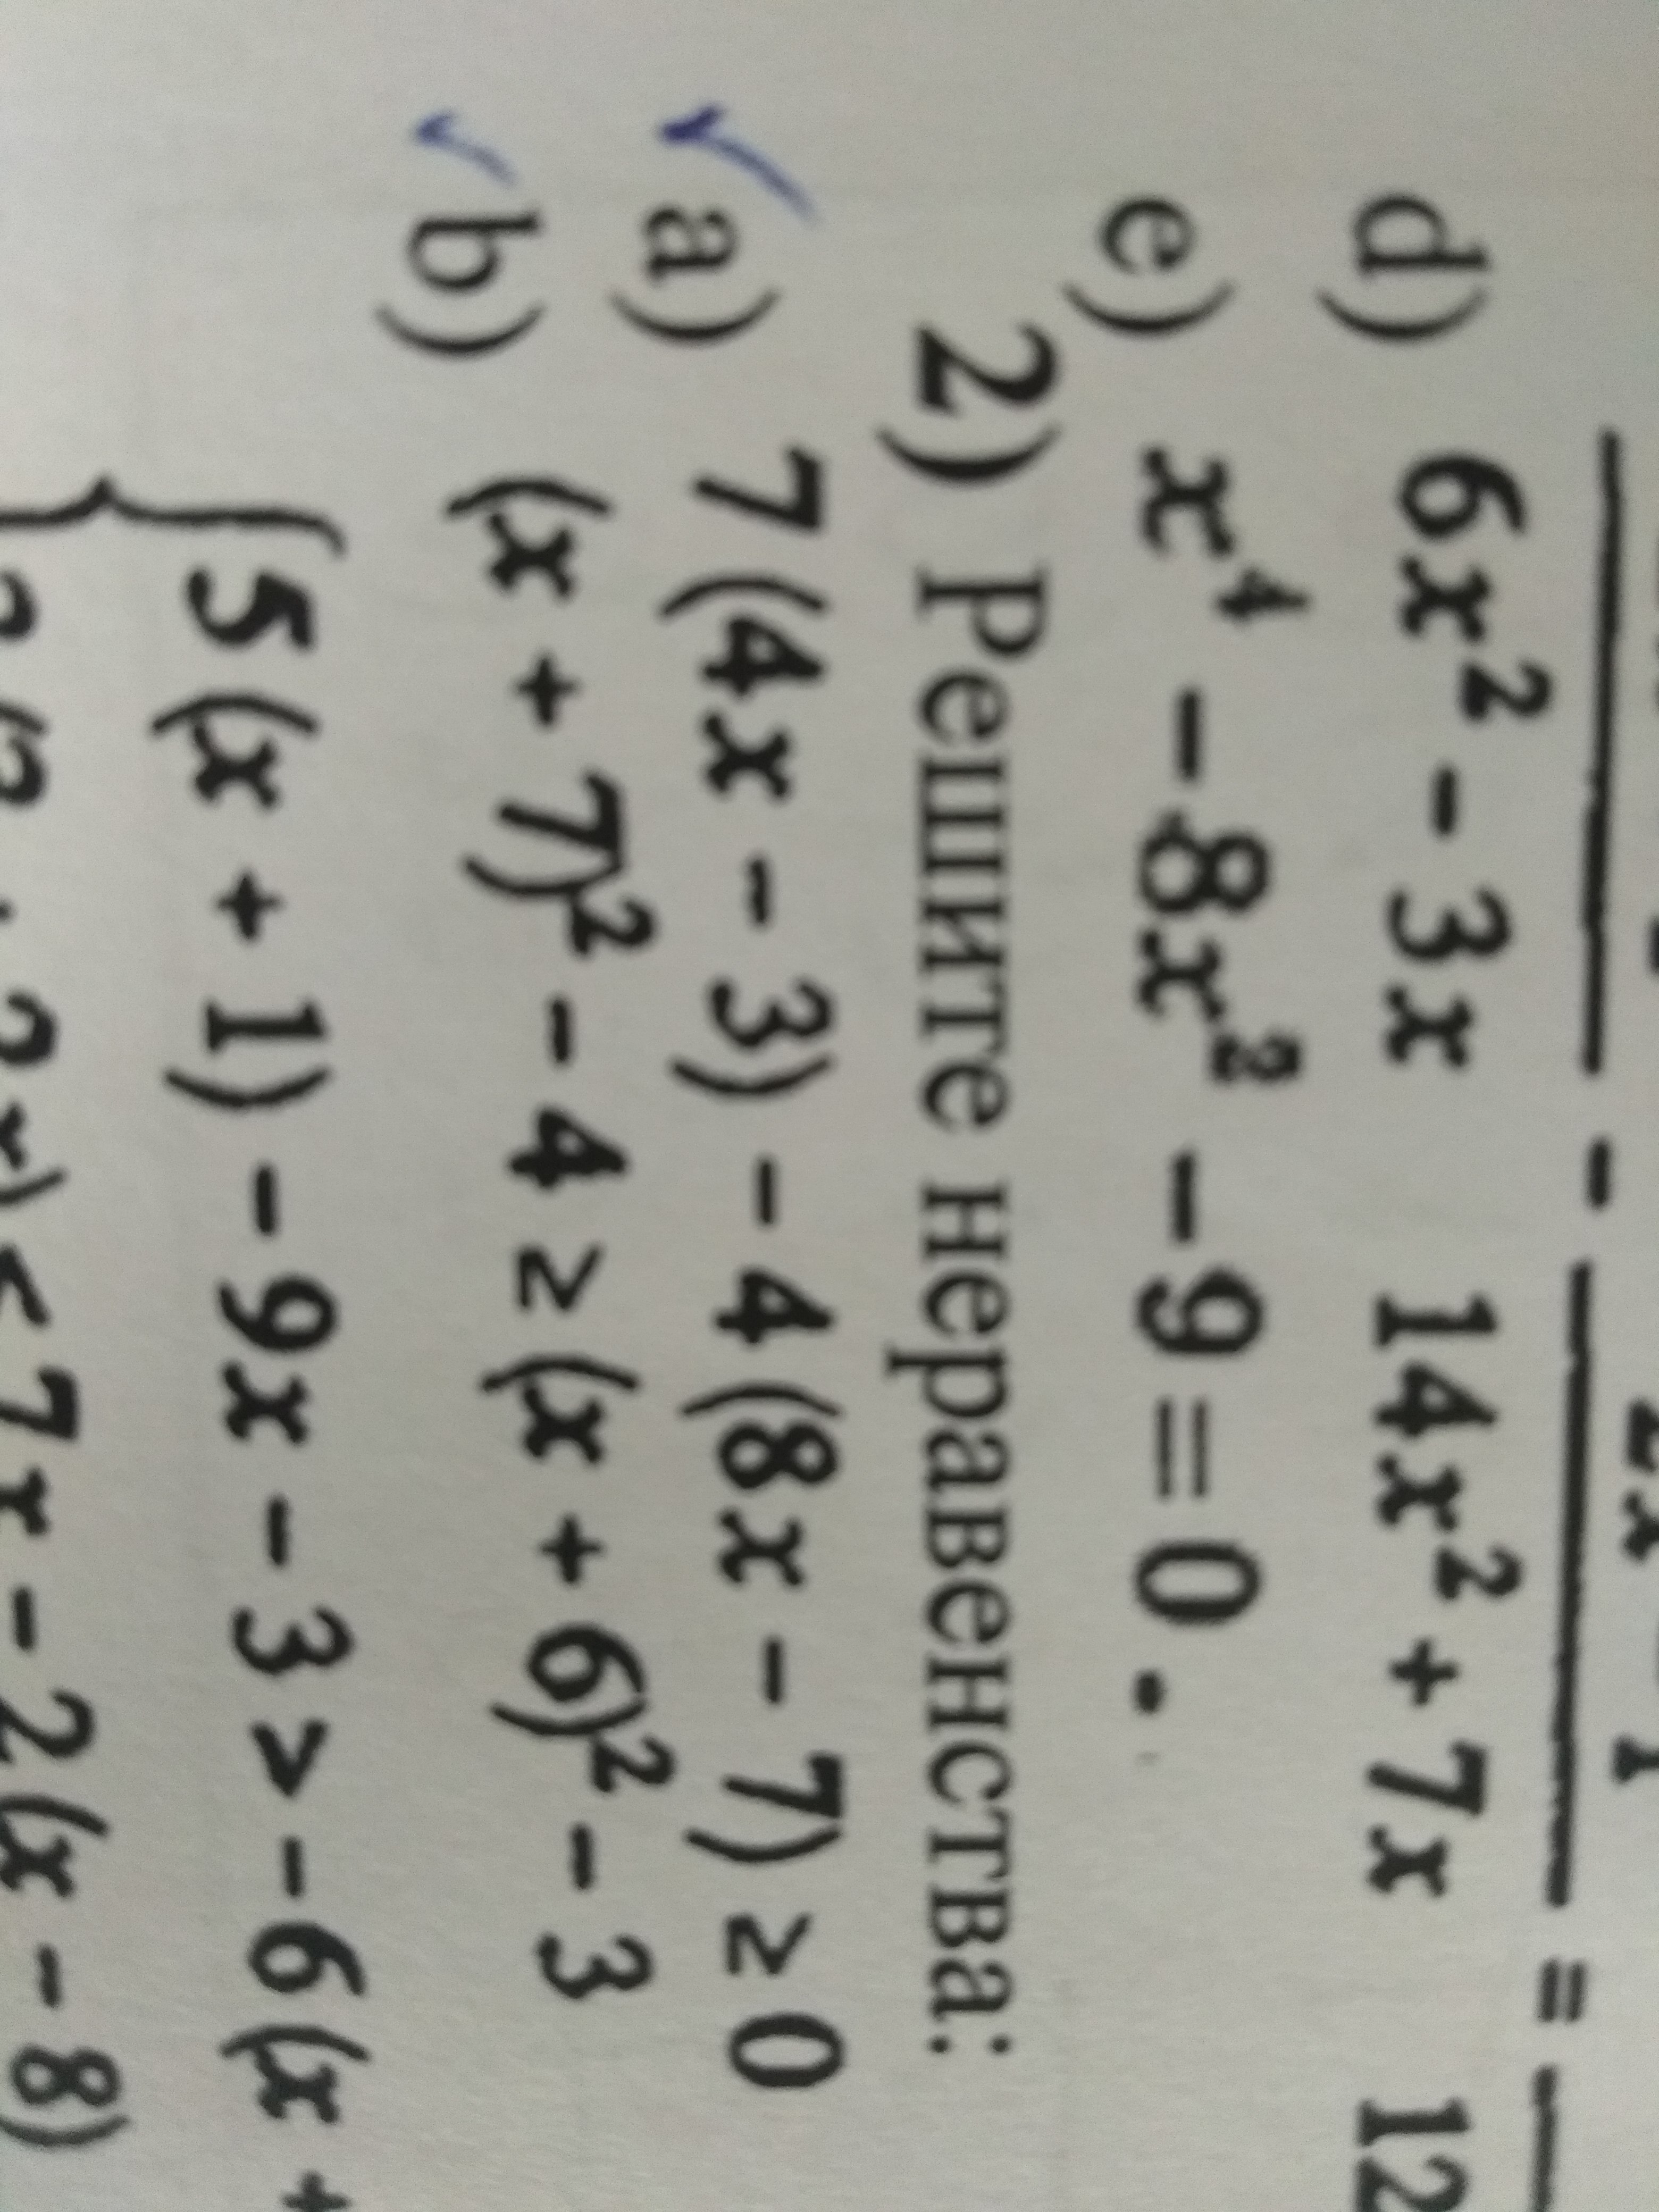 d) 6x² - 3x 14x² + 7x = 12
e) x⁴ - 8x² - 9 = 0.
2) Решите неравенства:
a) 7(4x - 3) - 4(8x - 7) ≥ 0
b) (x + 7)² - 4 ≥ (x + 6)² - 3
{5(x + 1) - 9x - 3 > -6(x +
< 7x - 2(x - 8)